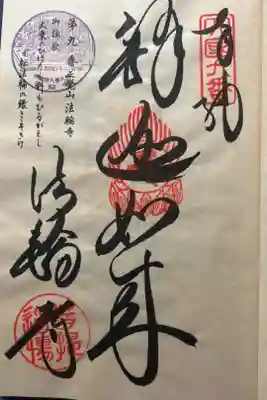 奉納
釋迦如来
第九番正覚山法輪寺
御詠歌
大乗のひほうもとがもひるがえし
転法輪の縁とこそきけ
法輪寺